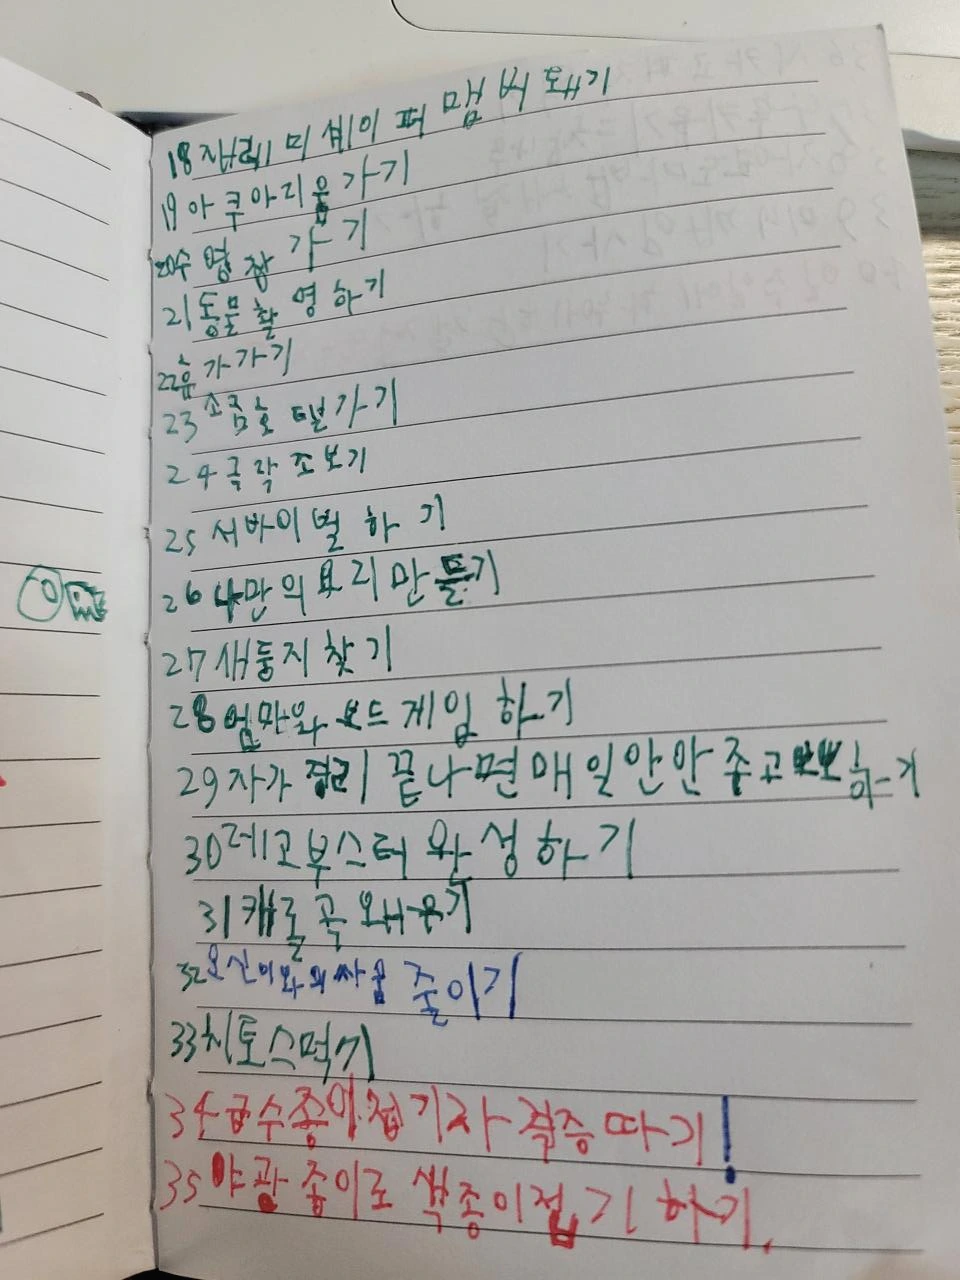 18 재레미 셰이퍼 맴버 돼기
19 아쿠아리움 가기
20 수영장 가기
21 동물 촬영하기
22 휴가 가기
23 소금호텔 가기
24 극락조 보기
25 서바이벌 하기
26 나만의 요리 만들기
27 새둥지 찾기
28 엄마와 보드 게임 하기
29 자가 격리 끝나면 매일 안안 주고 뽀뽀 하기
30 레고부스터 완성하기
31 캐롤 곡 외우기
32 오신이와의 싸움 줄이기
33 치토스 먹기
34 급수종이접기 자격증 따기!
35 야광 종이로 색종이접기 하기.